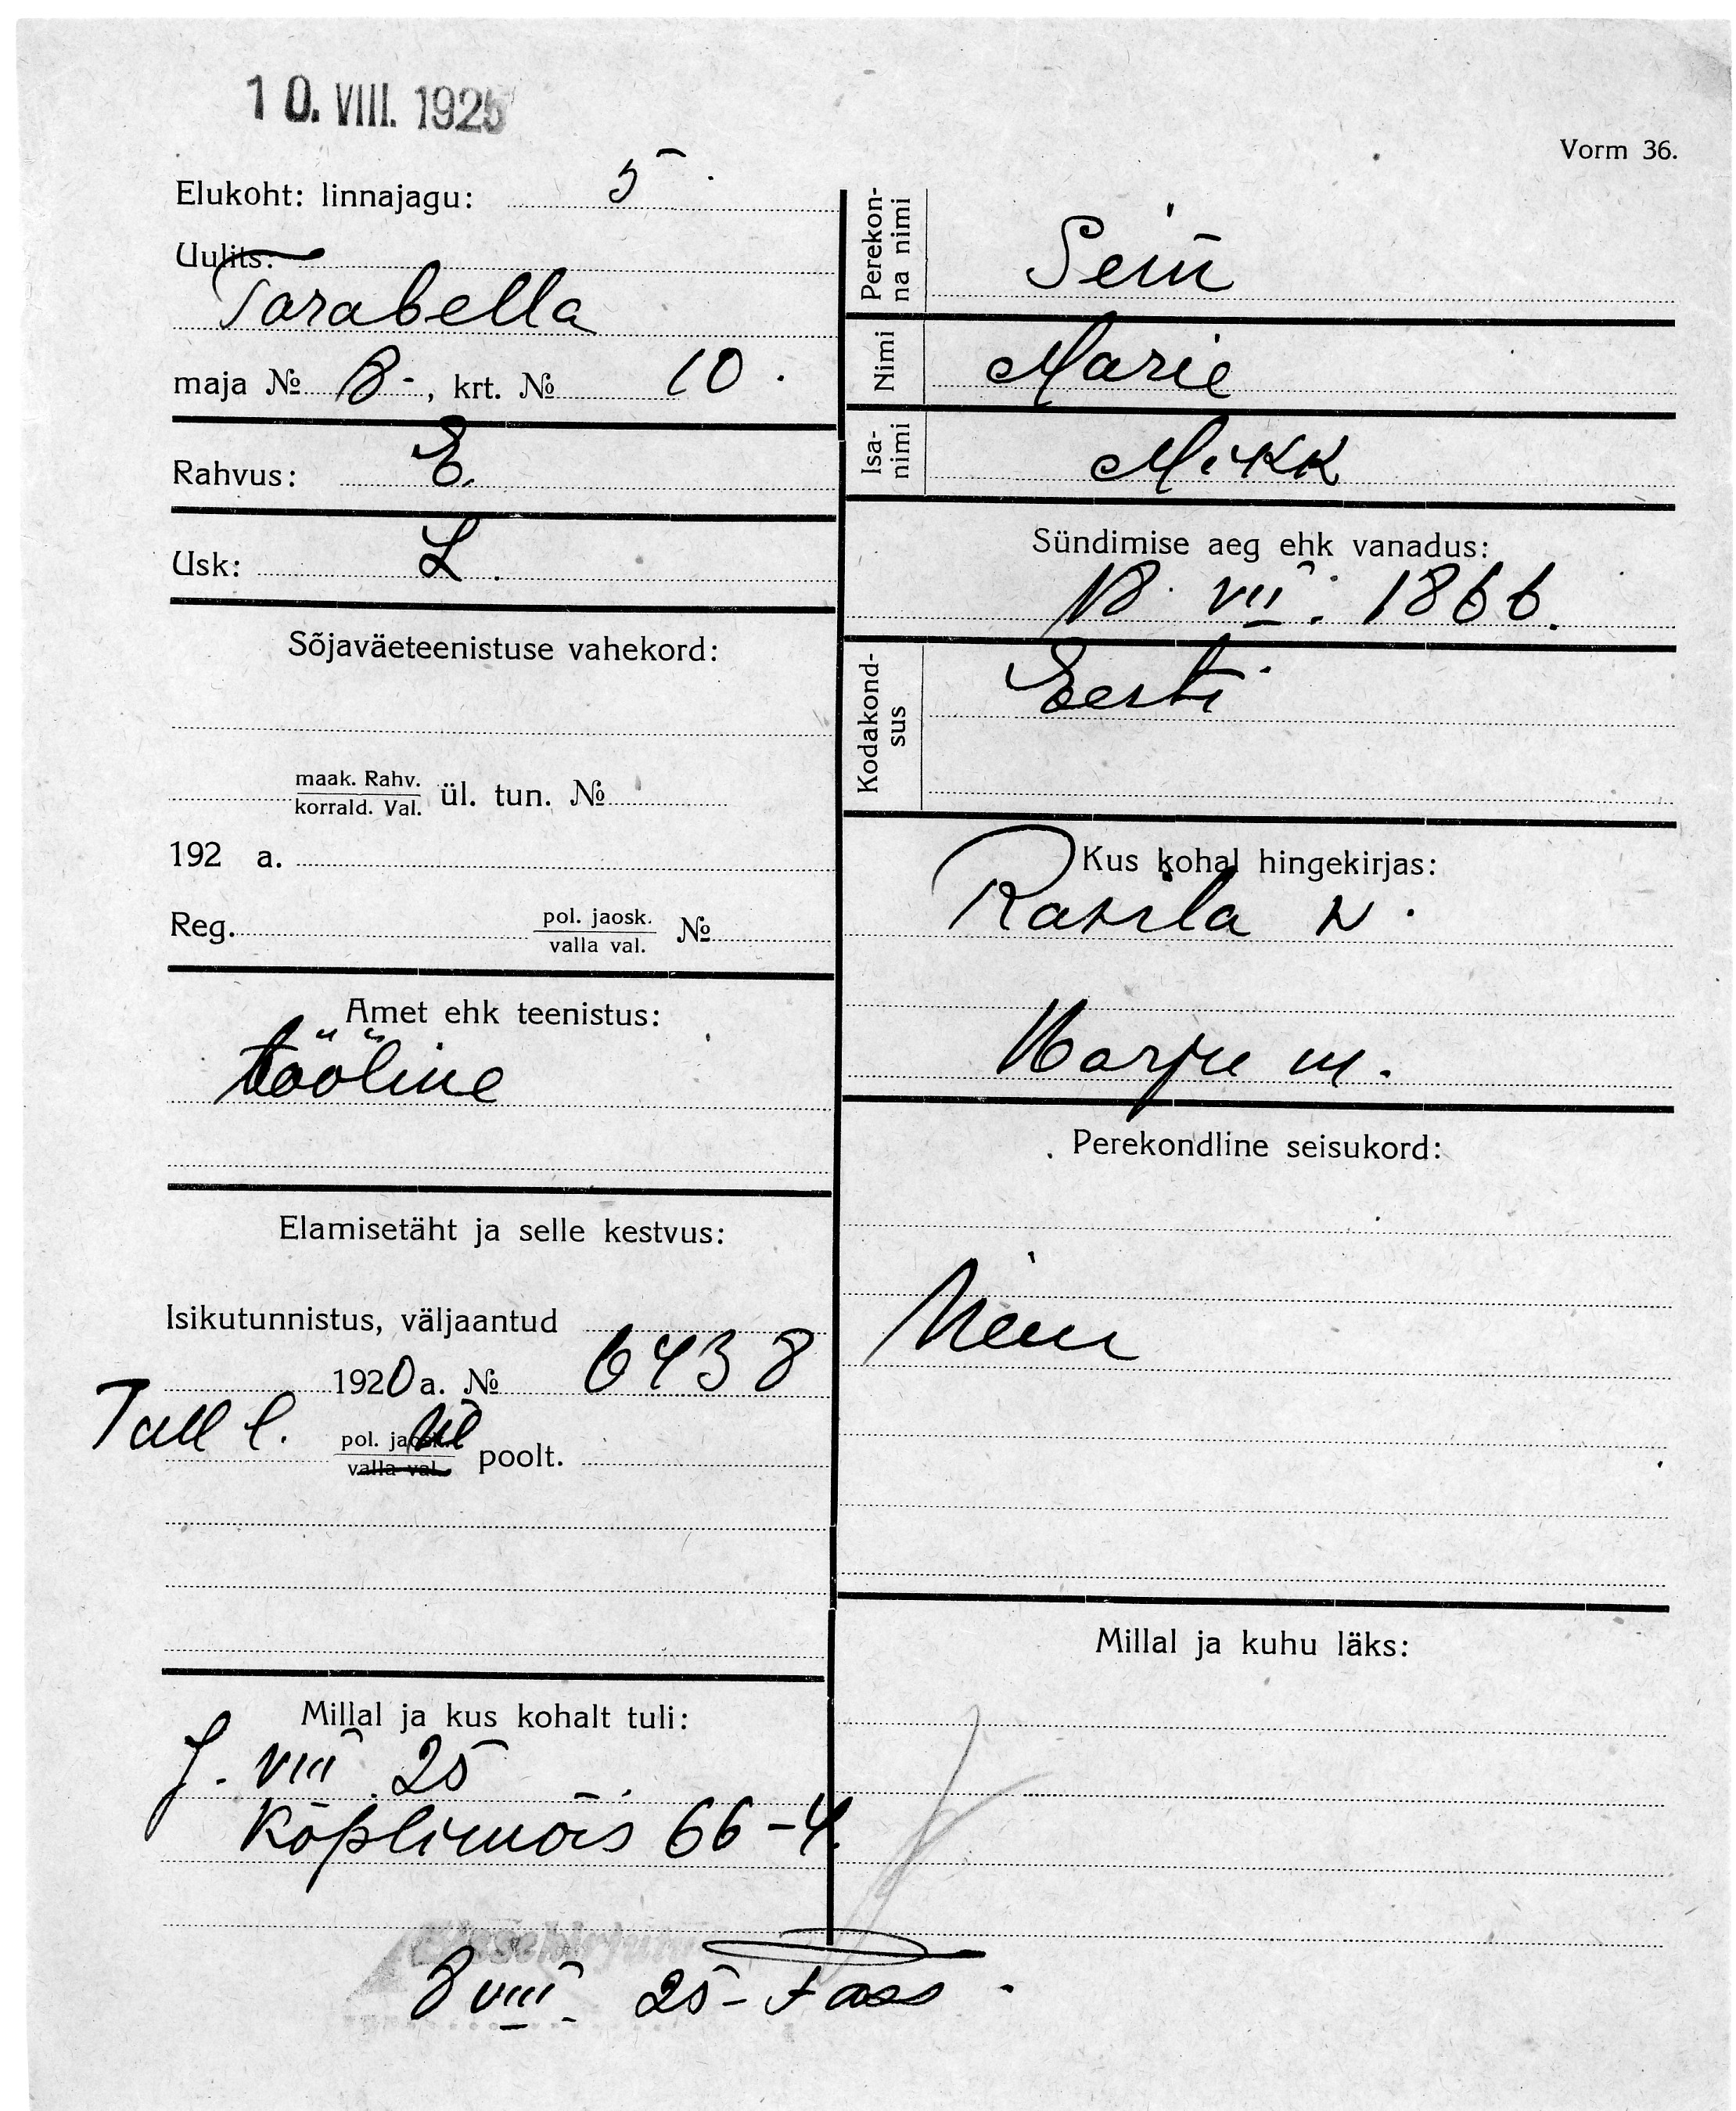 10. VIII. 1925
Vorm 36.
Elukoht: linnajagu: 5
Uulits:
Tarabella
maja № 8-, krt. № 10.
Rahvus: E.
Usk: L.
Sõjaväeteenistuse vahekord:
maak. Rahv.
korrald. Val.
ül. tun. №
192 a.
Reg. pol. jaosk.
valla val. №
Amet ehk teenistus:
tööline
Elamisetäht ja selle kestvus:
Isikutunnistus, väljaantud
1920 a. № 6438
Tall l. pol. jaosk.
valla val. poolt.
Millal ja kus kohalt tuli:
7. VIII 25
Koplimõis 66-4.
8 VIII 25-
Perekon-
na nimi
Sein
Nimi
Marie
Isa-
nimi
Mikk
Sündimise aeg ehk vanadus:
18. VII. 1866.
Kodakond-
sus
Eesti
Kus kohal hingekirjas:
Rasila v.
Harju m.
Perekondline seisukord:
Millal ja kuhu läks: